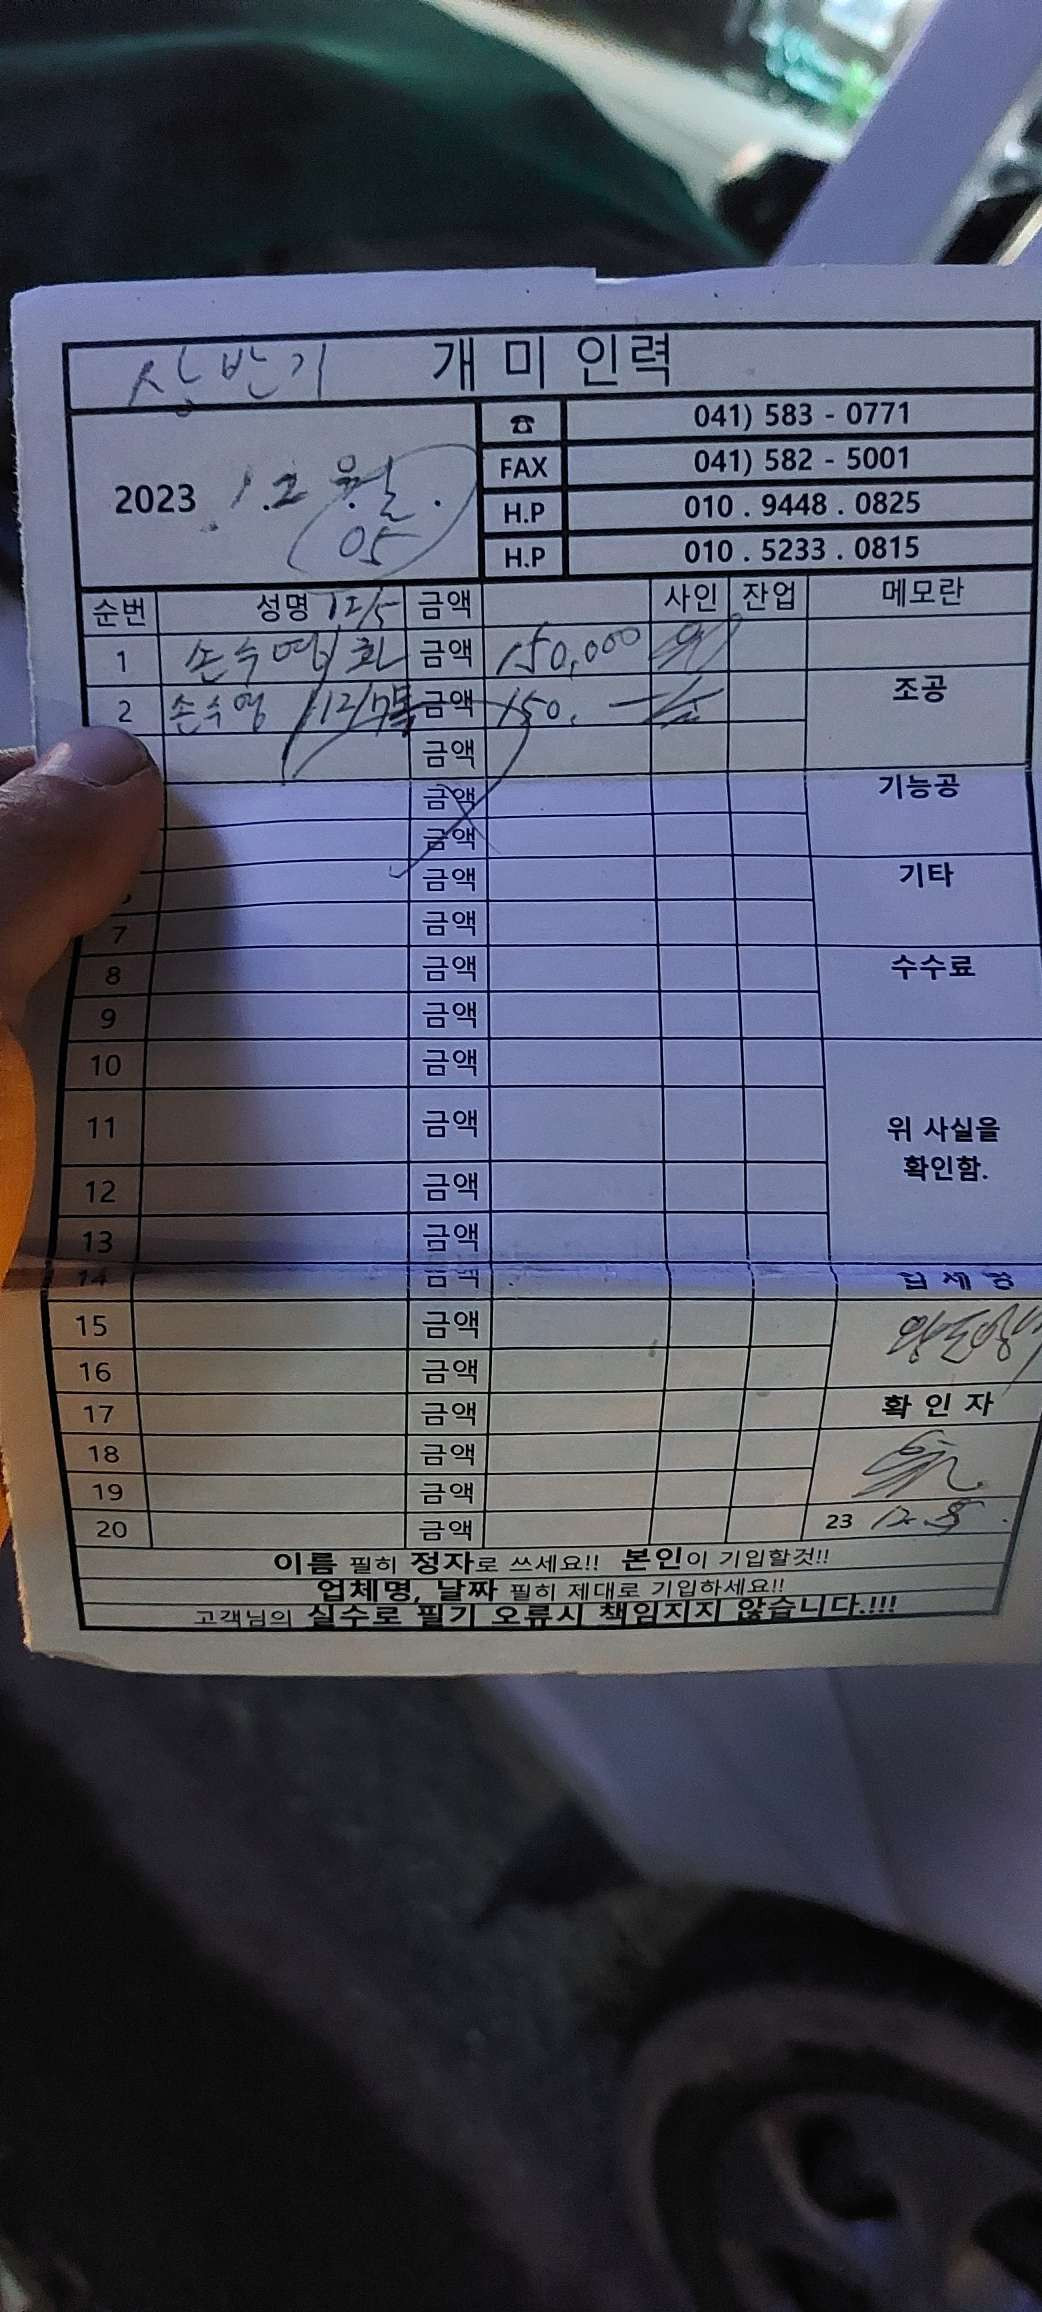 상반기 개미인력
☎ 041) 583 - 0771
FAX 041) 582 - 5001
2023 . 12 월 . 05
H.P 010 . 9448 . 0825
H.P 010 . 5233 . 0815
순번 성명 12/5 금액 사인 잔업 메모란
1 손수영 화 금액 150,000
2 손수영 12/7목 금액 150.
조공
금액
금액
기능공
금액
금액
기타
7 금액
8 금액
수수료
9 금액
10 금액
11 금액
위 사실을
확인함.
12 금액
13 금액
14 금액
업체명
15 금액
16 금액
17 금액
확인자
18 금액
19 금액
20 금액
23 12.
이름 필히 정자로 쓰세요!! 본인이 기입할것!!
업체명, 날짜 필히 제대로 기입하세요!!
고객님의 실수로 필기 오류시 책임지지 않습니다.!!!